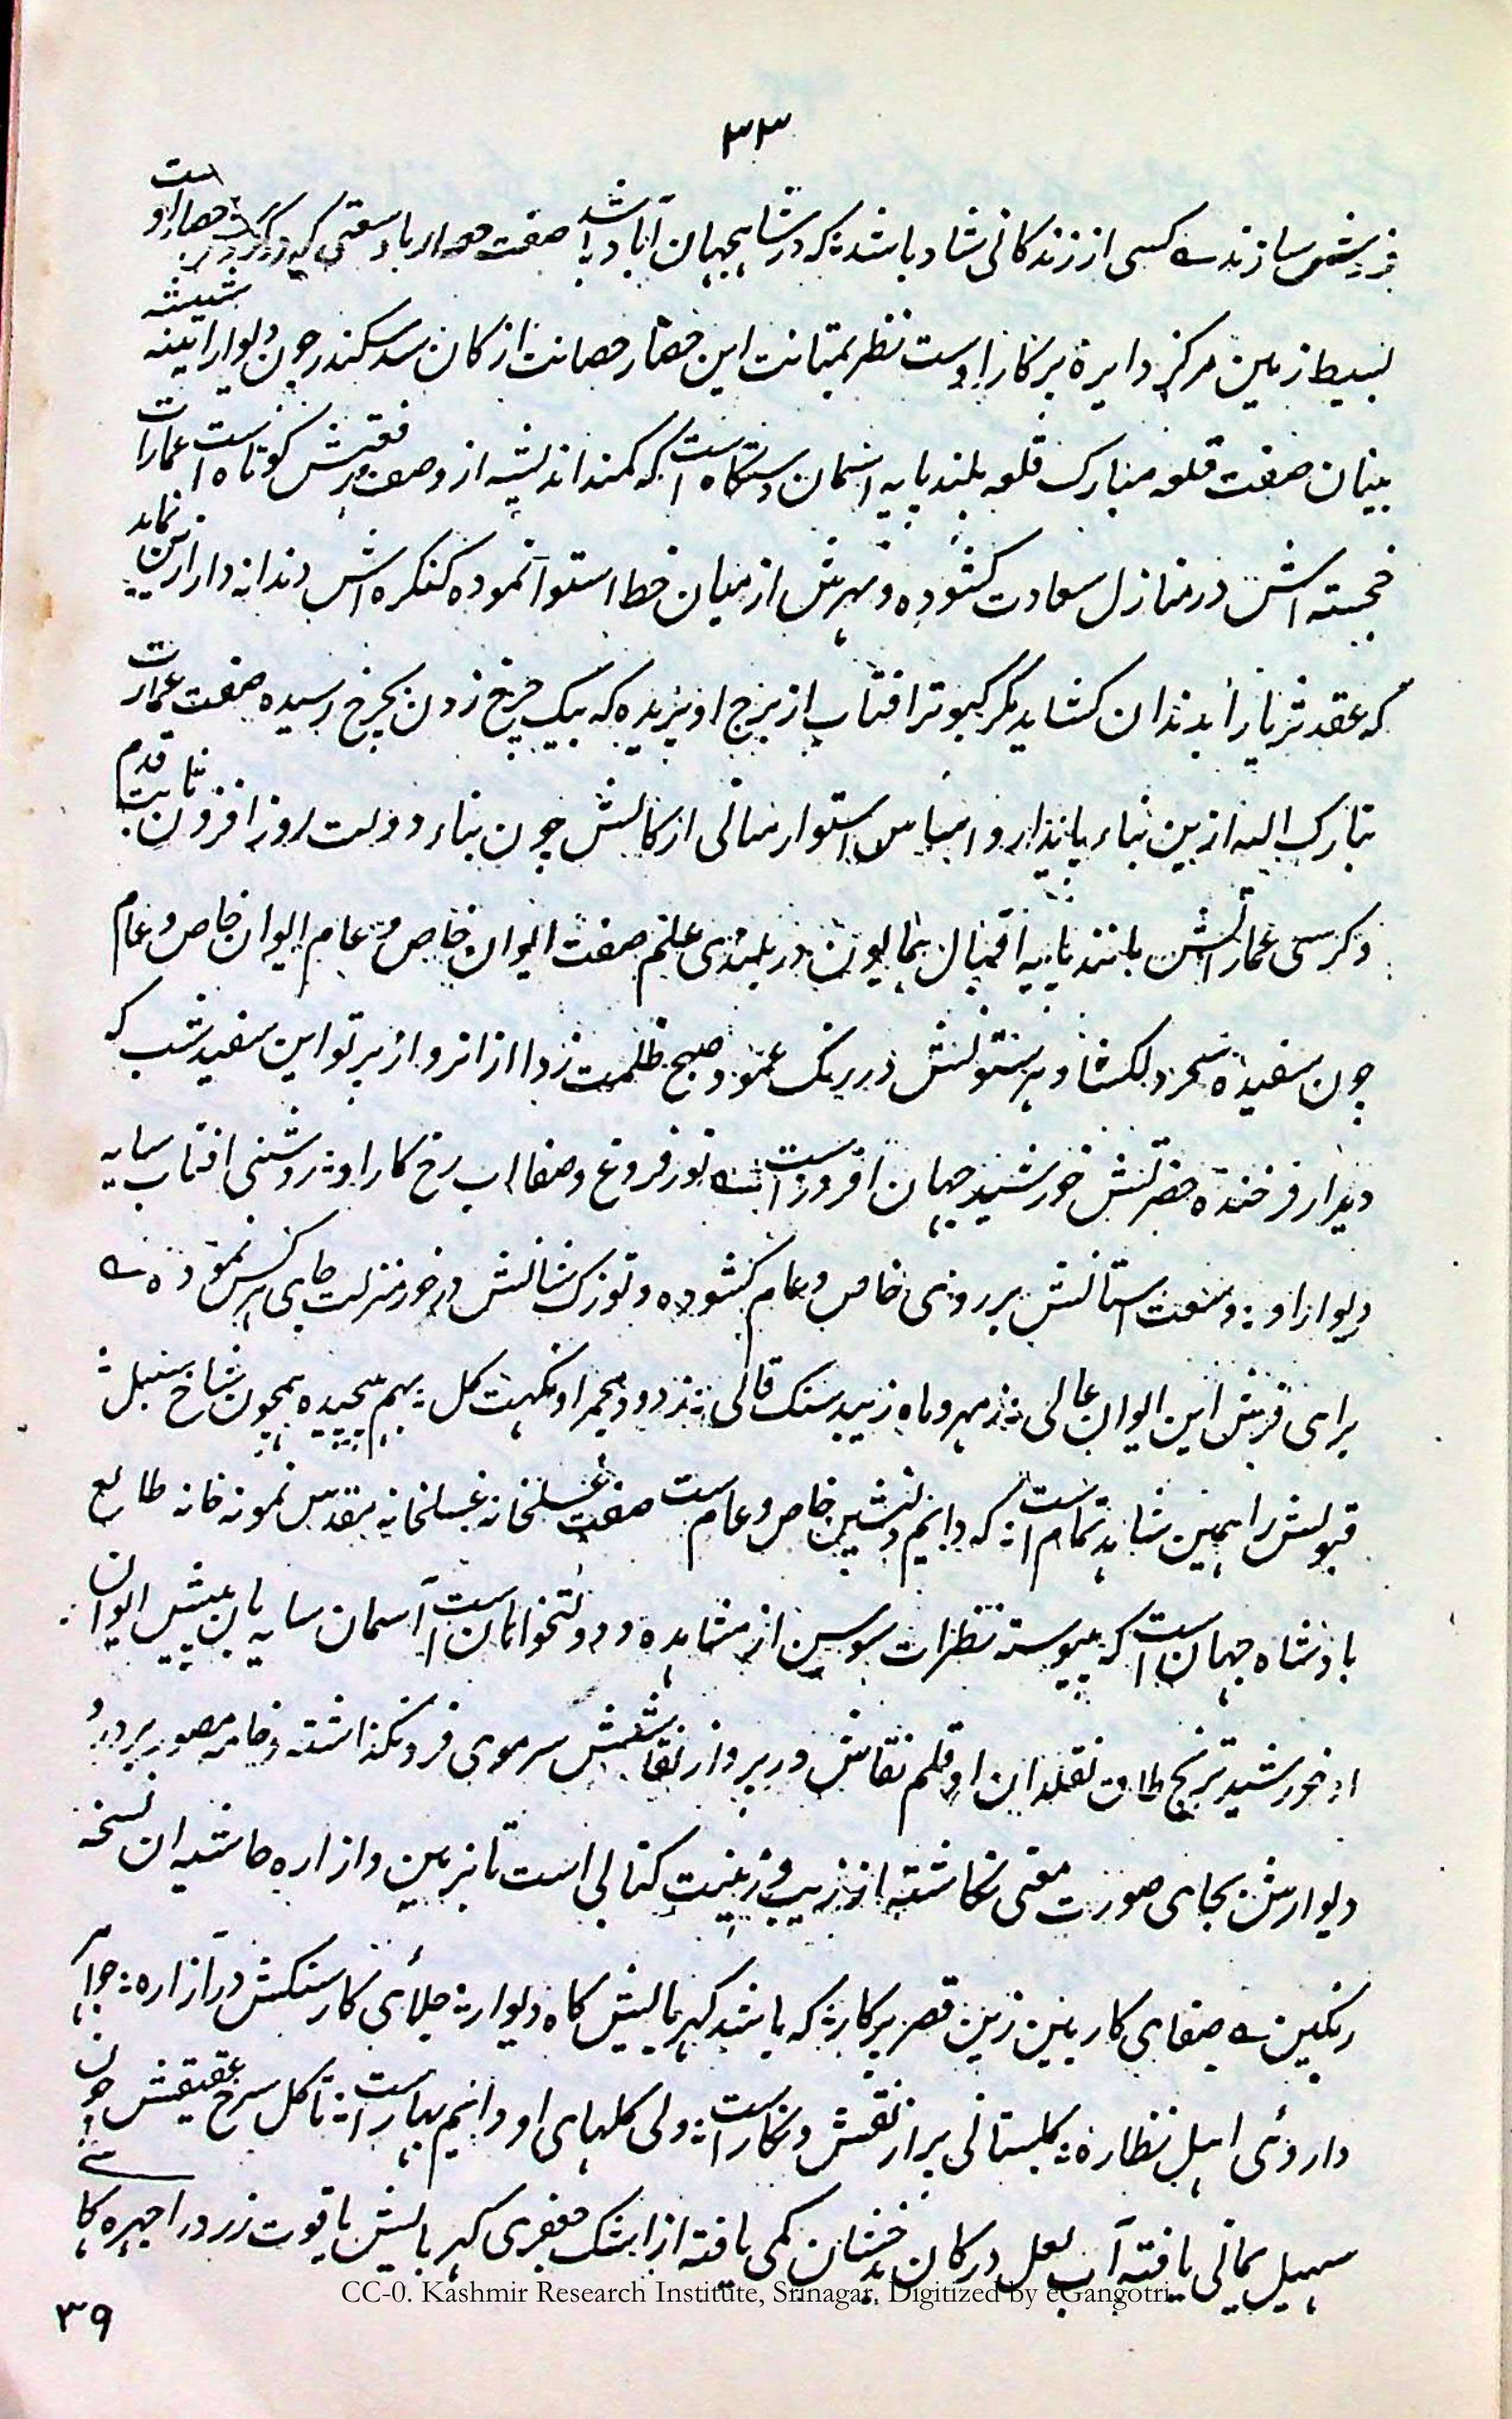 ۳۳
فریش سازند کسی از زندگانی شاد باشد که در شاهجهان آباد باشد صفت حصار با وسعتی که حصار او است
بسیط زمین مرکز دایرة پرکار اوست نظر بمتانت این حصار حصانت ارکان سد سکندر چون دیوار آیینه شیشه
بنیان صفت قلعه مبارک قلعه بلند پایه آسمان دستگاه است که کمند اندیشه از وصف رفعتش کوتاه است عمارات
خجسته اش در منازل سعادت کشوده و نهرش از میان خط استوا نموده کنکره اش دندانه دار ازین نماید
که عقد ثریا را بدندان کشاید مگر کبوتر افتاب از برج او پریده که بیک چرخ زدن بچرخ رسیده صفت عمارت
تبارک الله ازین بناء پایدار و اساس استوار مبانی ارکانش چون بناء دولت روز افزون ثابت قدم
و کرسی عماراتش مانند پایه اقبال همایون در بلندی علم صفت ایوان خاص و عام ایوان خاص و عام
چون سفیده سحر دلکشا و هر ستونش در رنک عمود صبح ظلمت زدا از انرو از پرتو این سفید شب که
دیدار فرخنده حضرتش خورشید جهان افروز است نور فروغ و صفا اب رخ کار او روشنی افتاب سایه
دیوار او وسعت استانش بر روی خاص و عام کشوده و توزک شانش در خور منزلت جای هر کس نموده
برای فرش این ایوان عالی ز مهر و ماه زیبد سنک قالی ز دود مجمر او نکهت کل بهم پیچیده همچون شاخ سنبل
قبولش را همین شاهد تمام است که دایم دلنشین خاص و عام است صفت غسلخانه غسلخانه مقدس نمونه خانه طالع
بادشاه جهان است که پیوسته نظرات سوسن از مشاهده و دولتخواهان است آسمان سایه بان پیش ایوان
او خورشید ترنج طاق نقلدان او قلم نقاش در پرداز نقاشیش سر موی فرو نکذاشته و خامه مصور بر در و
دیوارش بجای صورت معنی نکاشته از زیب و زینت کتابی است تا بزمین و ازاره حاشیه ان نسخه
رنکین صفای کار بین زین قصر پرکار که باشد کهربایش کاه دیوار جلای کار سنکش در ازاره جواهر
دارویٔ اهل نظاره کلستانی پر از نقش و نکار است ولی کلهای او دایم بهار است تا کل سرخ عقیقش چون
سهیل یمانی یافته آب لعل در کان بدخشان کمی یافته از اشک جعفری کهربایش یاقوت زرد را چهره کا
CC-0. Kashmir Research Institute, Srinagar. Digitized by eGangotri
۳۹